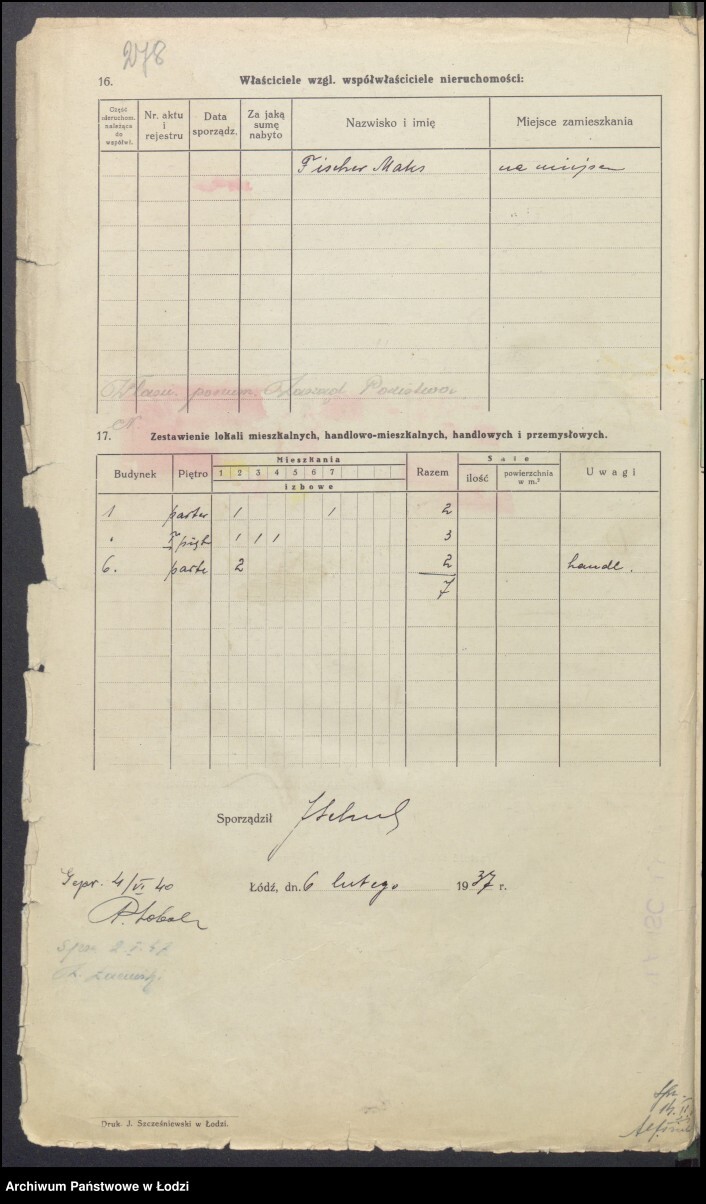 278
16. Właściciele wzgl. współwłaściciele nieruchomości:
Część nieruchom. należąca do współwł.
Nr. aktu i rejestru
Data sporządz.
Za jaką sumę nabyto
Nazwisko i imię
Miejsce zamieszkania
Fischer Maks na miejscu
17. Zestawienie lokali mieszkalnych, handlowo-mieszkalnych, handlowych i przemysłowych.
Budynek Piętro Mieszkania Razem Sale Uwagi
1 2 3 4 5 6 7
izbowe
ilość powierzchnia w m.²
1 parter 1 1 2
" I pięt 1 1 1 3
6. parte 2 2 handl.
7
Sporządził
Gepr. 4/VI 40
Łódź, dn. 6 lutego 1937 r.
Druk. J. Szcześniewski w Łodzi.
Archiwum Państwowe w Łodzi